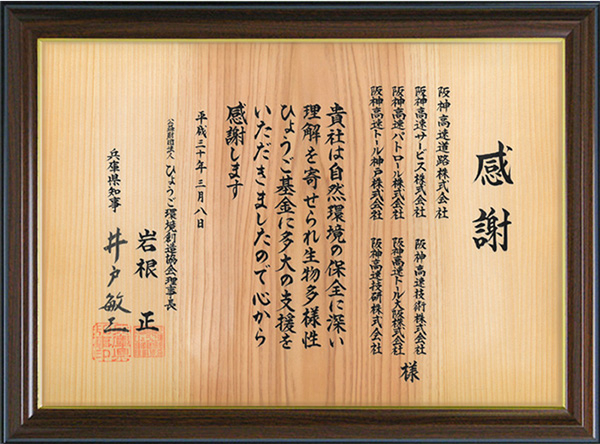 感謝
阪神高速道路株式会社
阪神高速サービス株式会社 阪神高速技術株式会社
阪神高速パトロール株式会社 阪神高速トール大阪株式会社
阪神高速トール神戸株式会社 阪神高速技研株式会社
様
貴社は自然環境の保全に深い
理解を寄せられ生物多様性
ひょうご基金に多大の支援を
いただきましたので心から
感謝します
平成三十年三月八日
公益財団法人 ひょうご環境創造協会理事長
岩根 正
兵庫県知事 井戸敏三